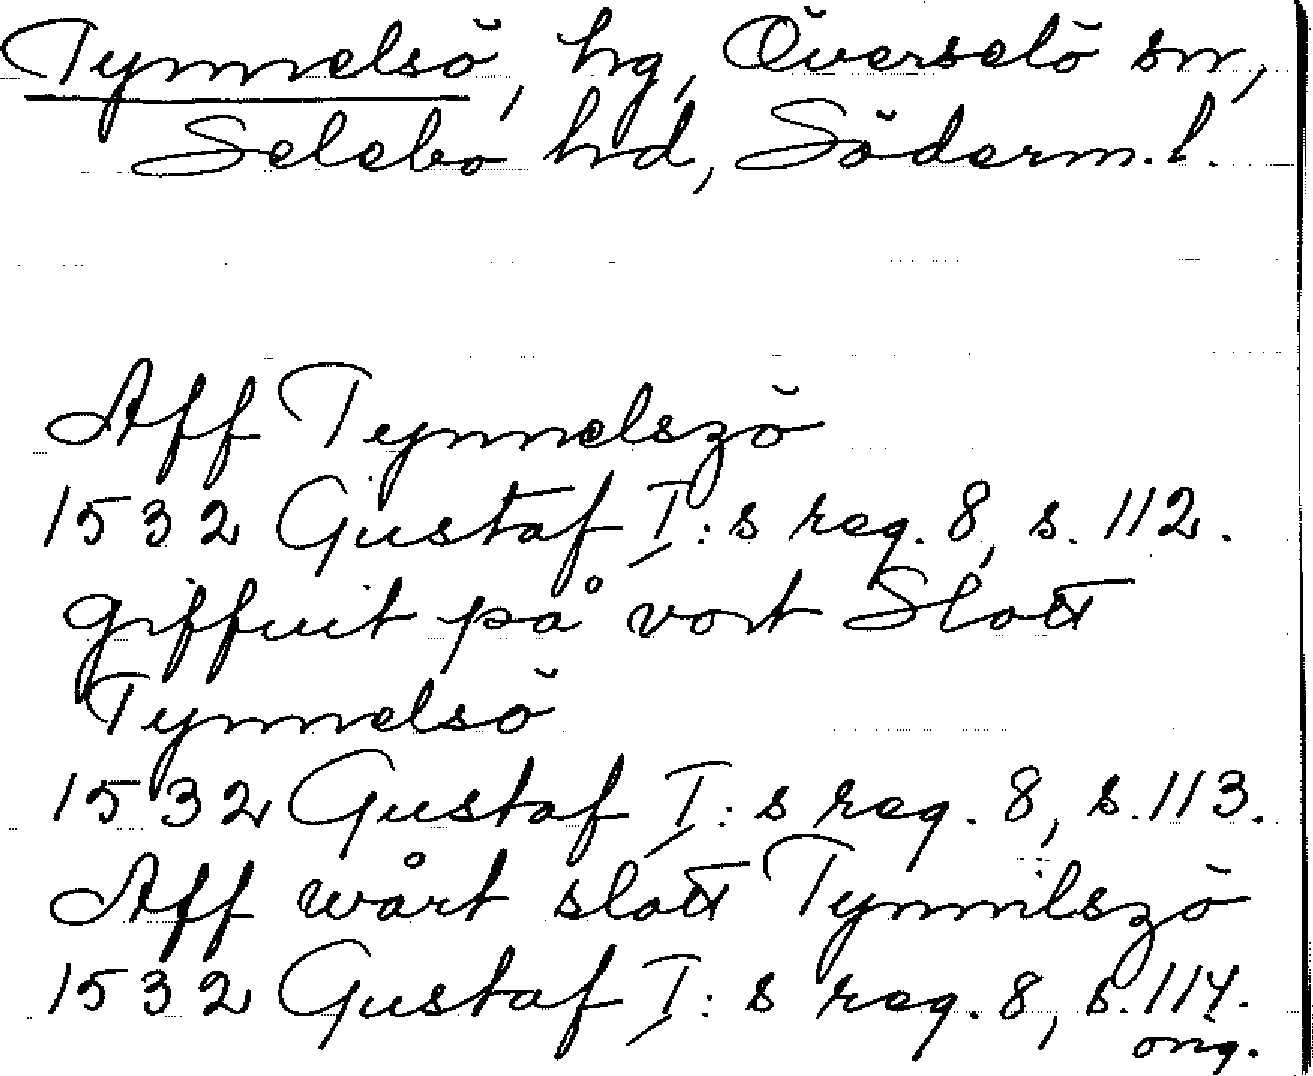 Tynnelsö, hg, Överselö sn,
Selebo hd, Söderm.l.
Aff Tynnelszö
1532 Gustaf I:s reg. 8, s. 112.
giffuit på vort Slott
Tynnelsö
1532 Gustaf I:s reg. 8, s. 113.
Aff wårt slott Tynnilszö
1532 Gustaf I:s reg. 8, s. 114.
orig.